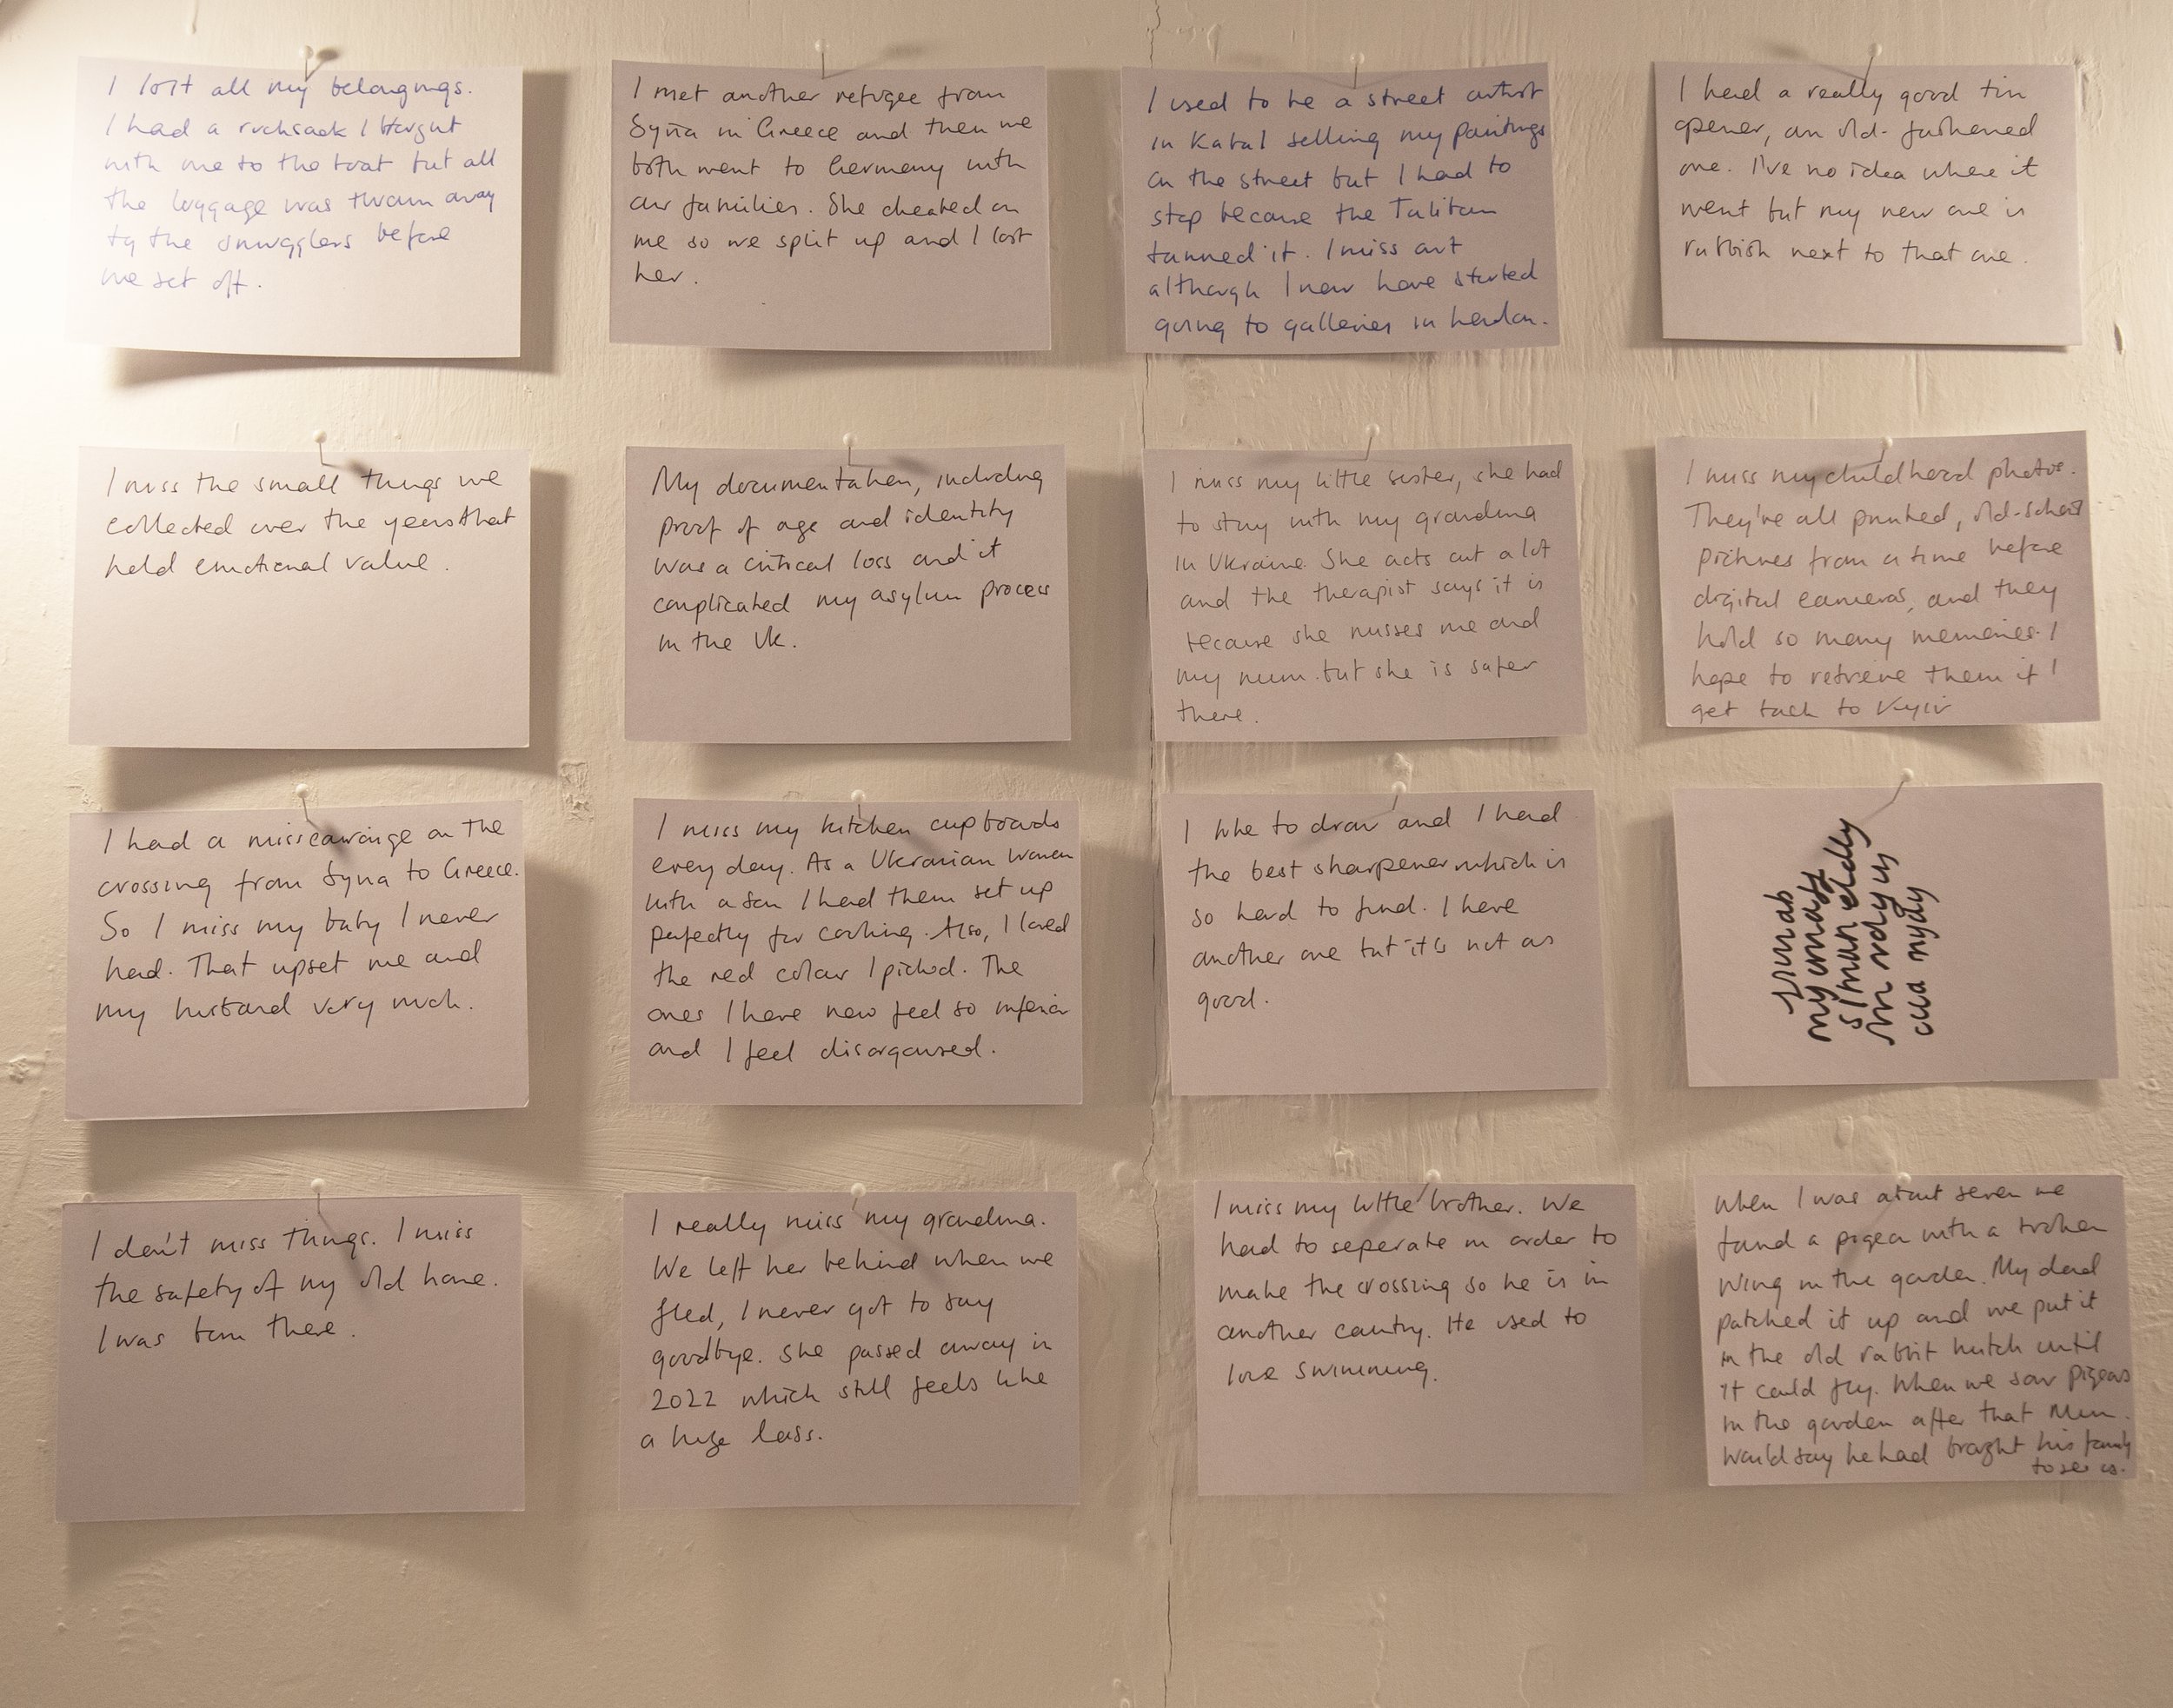 I lost all my belongings.
I had a rucksack I brought
with me to the boat but all
the luggage was thrown away
by the smugglers before
we set off.
I met another refugee from
Syria in Greece and then we
both went to Germany with
our families. She cheated on
me so we split up and I lost
her.
I used to be a street artist
in Kabul selling my paintings
on the street but I had to
stop because the Taliban
banned it. I miss art
although I now have started
going to galleries in London.
I had a really good tin
opener, an old-fashioned
one. I've no idea where it
went but my new one is
rubbish next to that one.
I miss the small things we
collected over the years that
held emotional value.
My documentation, including
proof of age and identity
was a critical loss and it
complicated my asylum process
in the UK.
I miss my little sister, she had
to stay with my grandma
in Ukraine. She acts out a lot
and the therapist says it is
because she misses me and
my mum but she is safer
there.
I miss my childhood photos.
They're all printed, old-school
pictures from a time before
digital cameras, and they
hold so many memories. I
hope to retrieve them if I
get back to Kyiv
I had a misscarraige on the
crossing from Syria to Greece.
So I miss my baby I never
had. That upset me and
my husband very much.
I miss my kitchen cupboards
every day. As a Ukranian women
with a son I had them set up
perfectly for cooking. Also, I loved
the red colour I picked. The
ones I have now feel so inferior
and I feel disorganised.
I like to draw and I had
the best sharpener which is
so hard to find. I have
another one but it is not as
good.
my
I don't miss things. I miss
the safety of my old home.
I was born there.
I really miss my grandma.
We left her behind when we
fled, I never got to say
goodbye. She passed away in
2022 which still feels like
a huge loss.
I miss my little brother. We
had to seperate in order to
make the crossing so he is in
another country. He used to
love swimming.
When I was about seven we
found a pigeon with a broken
wing in the garden. My dad
patched it up and we put it
in the old rabbit hutch until
it could fly. When we saw pigeons
in the garden after that Mum
would say he had brought his family
to see us.